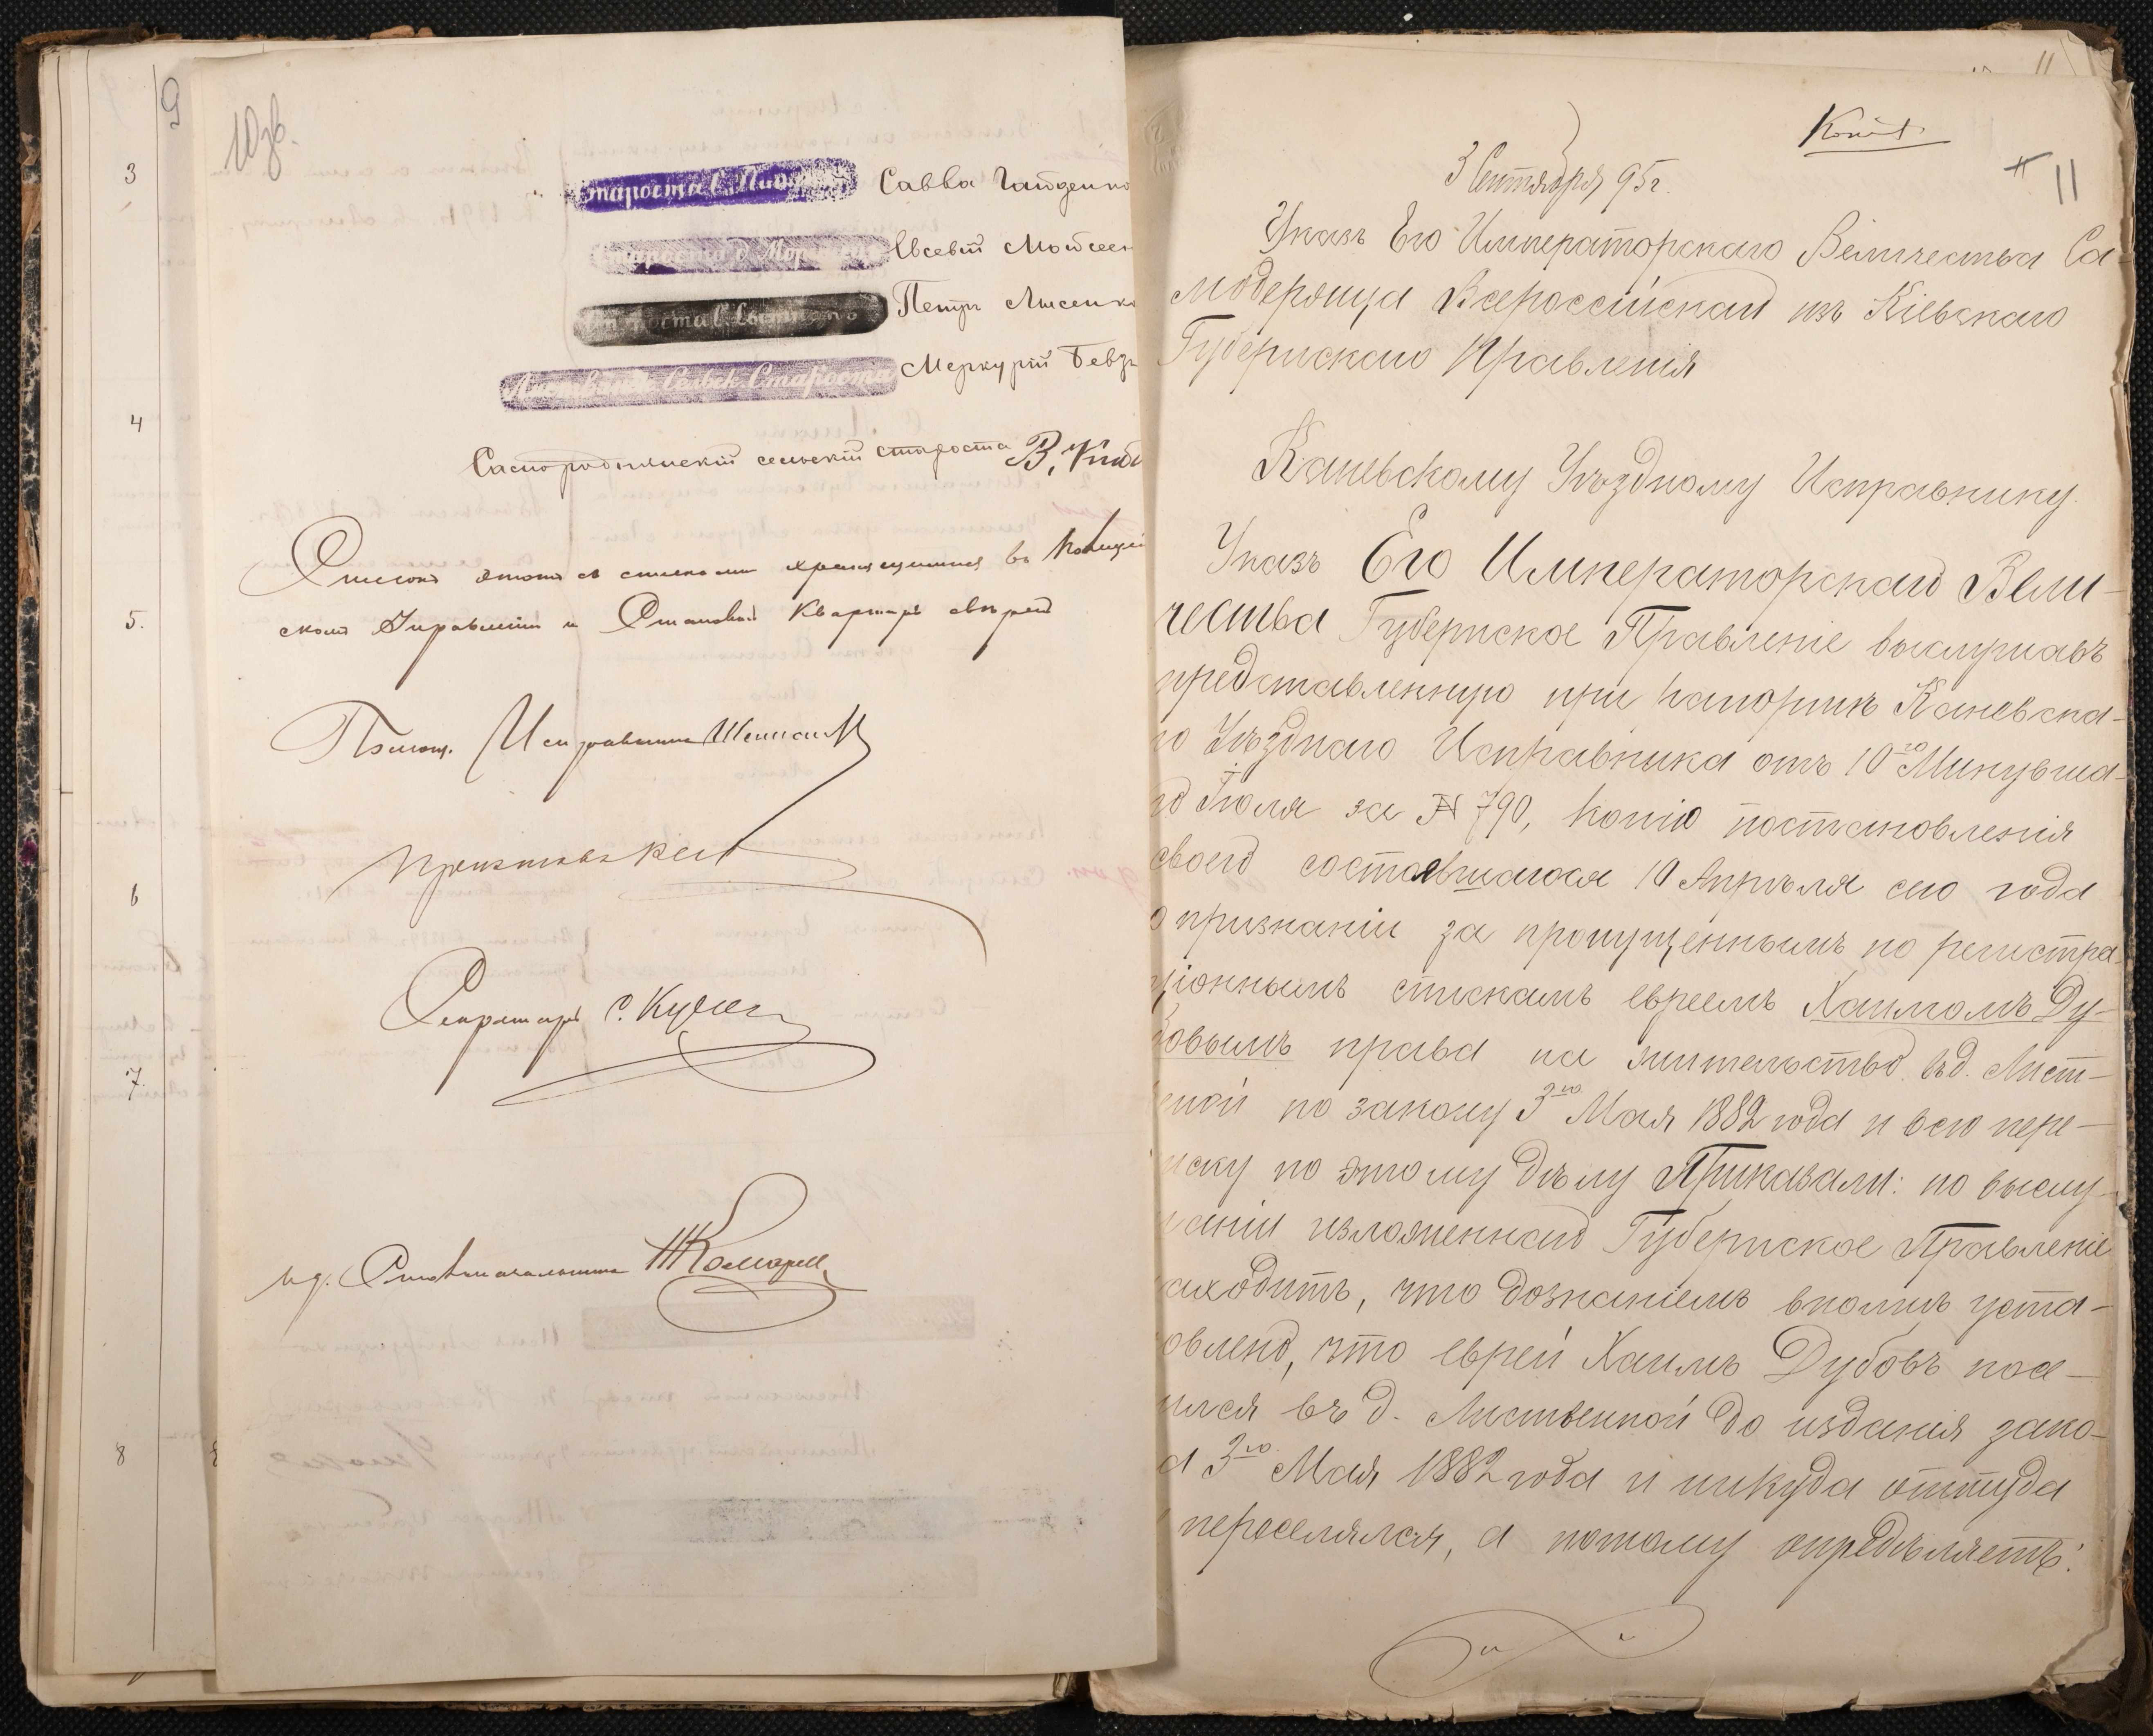 9
3
4
5.
6
7.
8
10зв.
Староста С.
Савва Гайденко
Староста д.
Евсевій Моисеен
староста С.
Петръ Лисенко
Сельск. Староста
Меркурій Бевз
сельскій староста В.
Списокъ этотъ съ списками хранящимися въ Полицей
скомъ Управленіи и Становой Квартирѣ свѣренъ
Помощ. Исправника
Секретарь С.
ид. Столоначальника
11
Копія.
11
3 Сентября 95 г.
Указъ Его Императорскаго Величества Са-
модержца Всероссійскаго изъ Кіевскаго
Губернскаго Правленія
Каневскому Уѣздному Исправнику.
Указъ Его Императорскаго Вели-
чества Губернское Правленіе выслушавъ
представленную при рапортѣ Каневска-
го Уѣзднаго Исправника отъ 10го Минувша-
го Іюля за № 790, копію постановленія
своего состоявшагося 10 Апрѣля сего года
о признаніи за пропущеннымъ по регистра-
ціоннымъ спискамъ евреемъ Хаимомъ Ду-
бовымъ права на жительство въ д. Листве-
нной по закону 3го Мая 1882 года и всю пере-
иску по этому дѣлу Приказали: по выслу-
аніи изложеннаго Губернское Правленіе
аходитъ, что дознаніемъ вполнѣ уста-
овлено, что еврей Хаимъ Дубовъ посе-
ился въ д. Лиственной до изданія зако-
а 3го Мая 1882 года и никуда оттуда
переселялся, а потому опредѣляетъ: